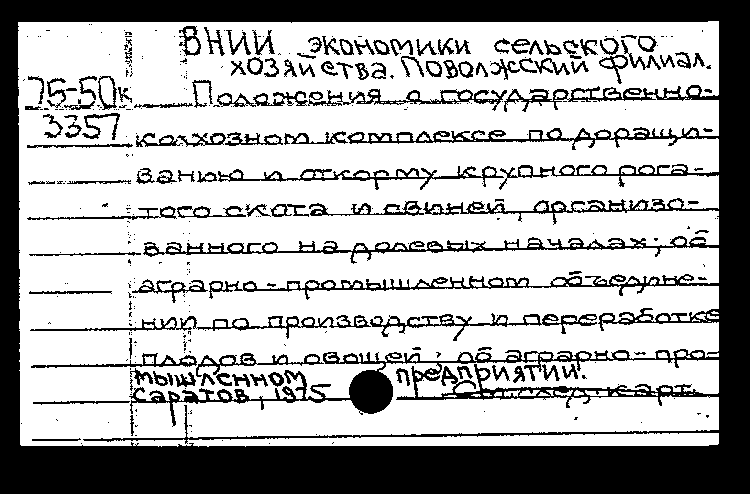 ВНИИ экономики сельского
хозяйства. Поволжский филиал.
75-50к
Положения о государственно-
3357
колхозном комплексе по доращи-
ванию и откорму крупного рога-
того скота и свиней, организо-
ванного на долевых началах; об
аграрно-промышленном объедине-
нии по производству и переработке
плодов и овощей; об аграрно-про-
мышленном предприятии.
Саратов, 1975
См. след. карт.